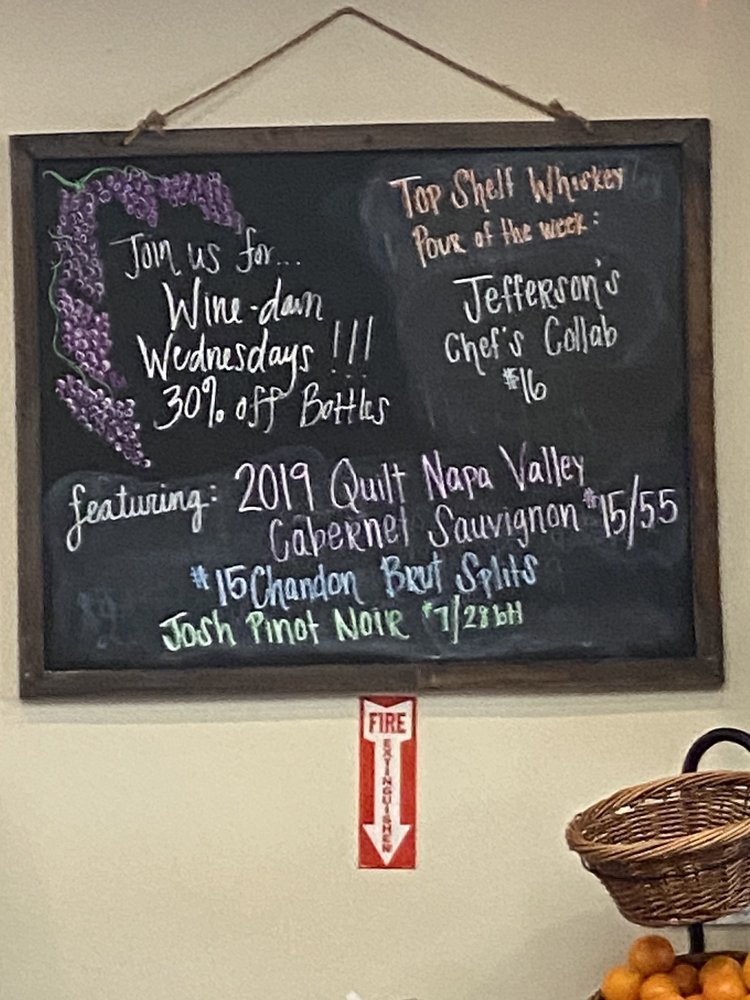 Join us for...
Wine-down
Wednesdays !!!
30% off Bottles
Top Shelf Whiskey
Pour of the week:
Jefferson's
Chef's Collab
$16
featuring: 2019 Quilt Napa Valley
Cabernet Sauvignon $15/55
$15 Chandon Brut Splits
Josh Pinot Noir $7/28 btl
FIRE
EXTINGUISHER